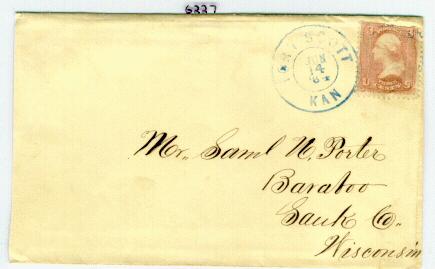 6227
FORT SCOTT
JUN
14
64
KAN
Mr. Saml N. Porter
Baraboo
Sauk Co.
Wisconsin